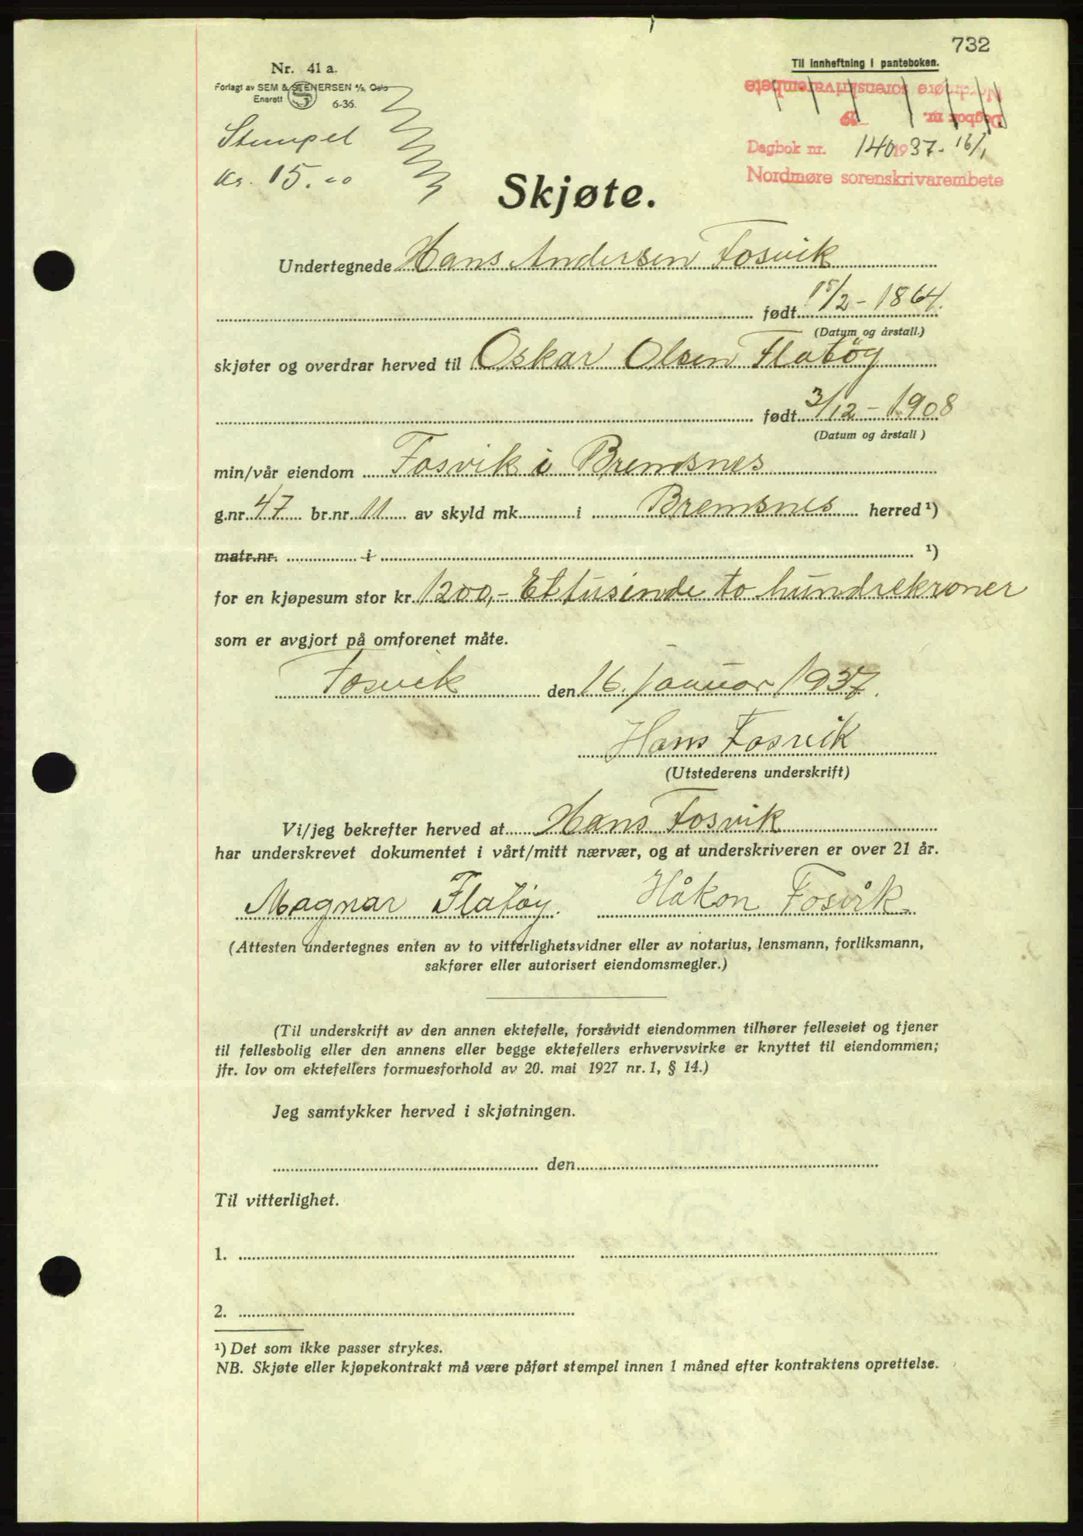 732
Nr. 41 a.
Forlagt av SEM & STENERSEN A/S, Oslo
Enerett 6-36.
Til innheftning i panteboken.
Nordmøre sorenskrivarembete
Dagbok nr. 19
Stempel
Kr. 15.00
Dagbok nr. 140 1937 - 16/1
Nordmøre sorenskrivarembete
Skjøte.
Undertegnede Hans Andersen Fosvik
født 15/2 - 1864.
(Datum og årstall.)
skjøter og overdrar herved til Oskar Olsen Flatøy
født 3/12 - 1908
(Datum og årstall )
min/vår eiendom Fosvik i Bremsnes
g.nr. 47 br.nr. 11 av skyld mk. i Bremsnes herred ¹)
matr.nr. i ¹)
for en kjøpesum stor kr. 1200,- Et tusinde to hundrekroner
som er avgjort på omforenet måte.
Fosvik den 16. januar 1937.
Hans Fosvik
(Utstederens underskrift)
Vi/jeg bekrefter herved at Hans Fosvik
har underskrevet dokumentet i vårt/mitt nærvær, og at underskriveren er over 21 år.
Magnar Flatøy. Håkon Fosvik.
(Attesten undertegnes enten av to vitterlighetsvidner eller av notarius, lensmann, forliksmann,
sakfører eller autorisert eiendomsmegler.)
(Til underskrift av den annen ektefelle, forsåvidt eiendommen tilhører felleseiet og tjener
til fellesbolig eller den annens eller begge ektefellers erhvervsvirke er knyttet til eiendommen;
jfr. lov om ektefellers formuesforhold av 20. mai 1927 nr. 1, § 14.)
Jeg samtykker herved i skjøtningen.
den
Til vitterlighet.
1.
2.
¹) Det som ikke passer strykes.
NB. Skjøte eller kjøpekontrakt må være påført stempel innen 1 måned efter kontraktens oprettelse.